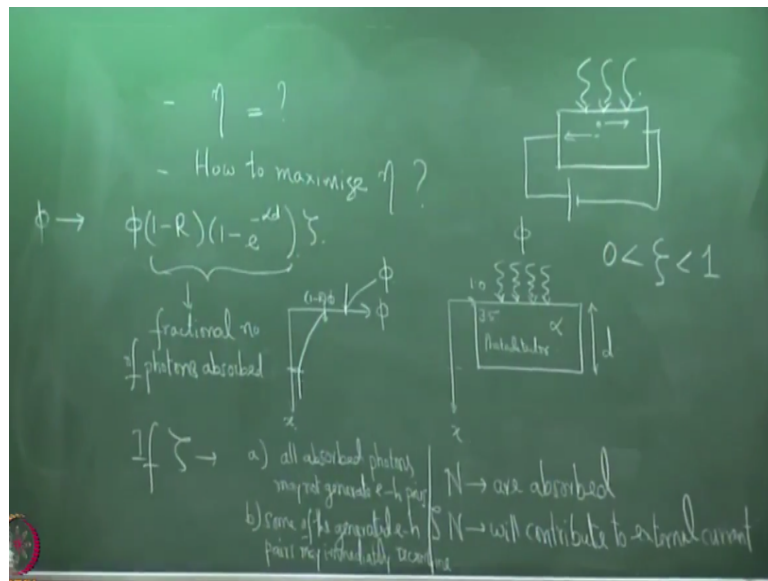 - η = ?
- How to maximise η ?
ϕ → ϕ(1-R)(1-e^{-αd}) ζ.
fractional no
of photons absorbed
(1-R)ϕ
ϕ
ϕ
x
If ζ →
a) all absorbed photons
may not generate e-h pairs
b) some of the generated e-h
pairs may immediately recombine
ϕ
0 < ξ < 1
1.0
3.5
α
d
x
N → are absorbed
ζ N → will contribute to external current